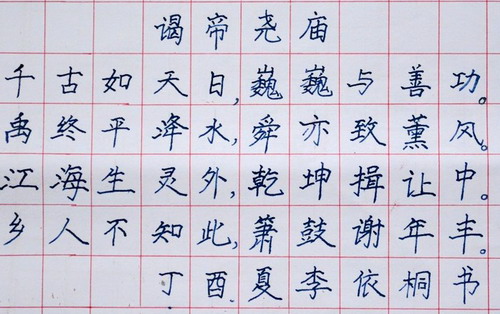 谒帝尧庙
千古如天日,巍巍与善功。
禹终平洚水,舜亦致薰风。
江海生灵外,乾坤揖让中。
乡人不知此,箫鼓谢年丰。
丁酉.夏李依桐书